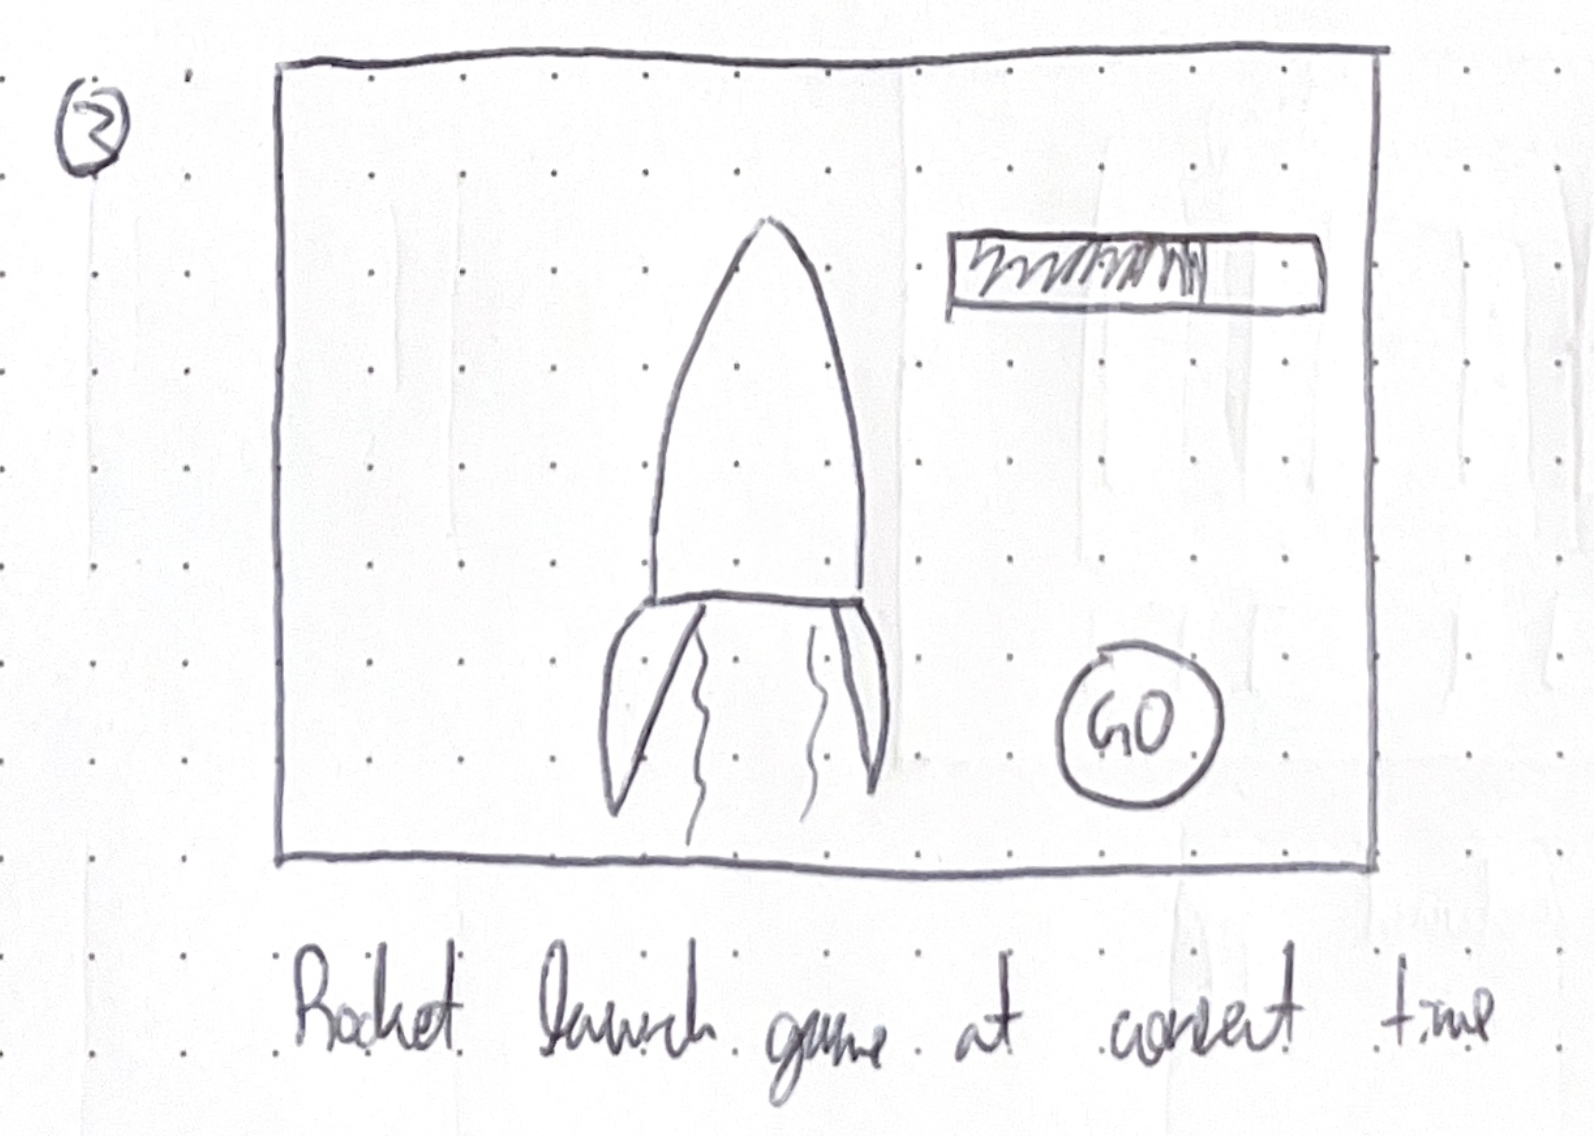 3
GO
Rocket launch game at correct time